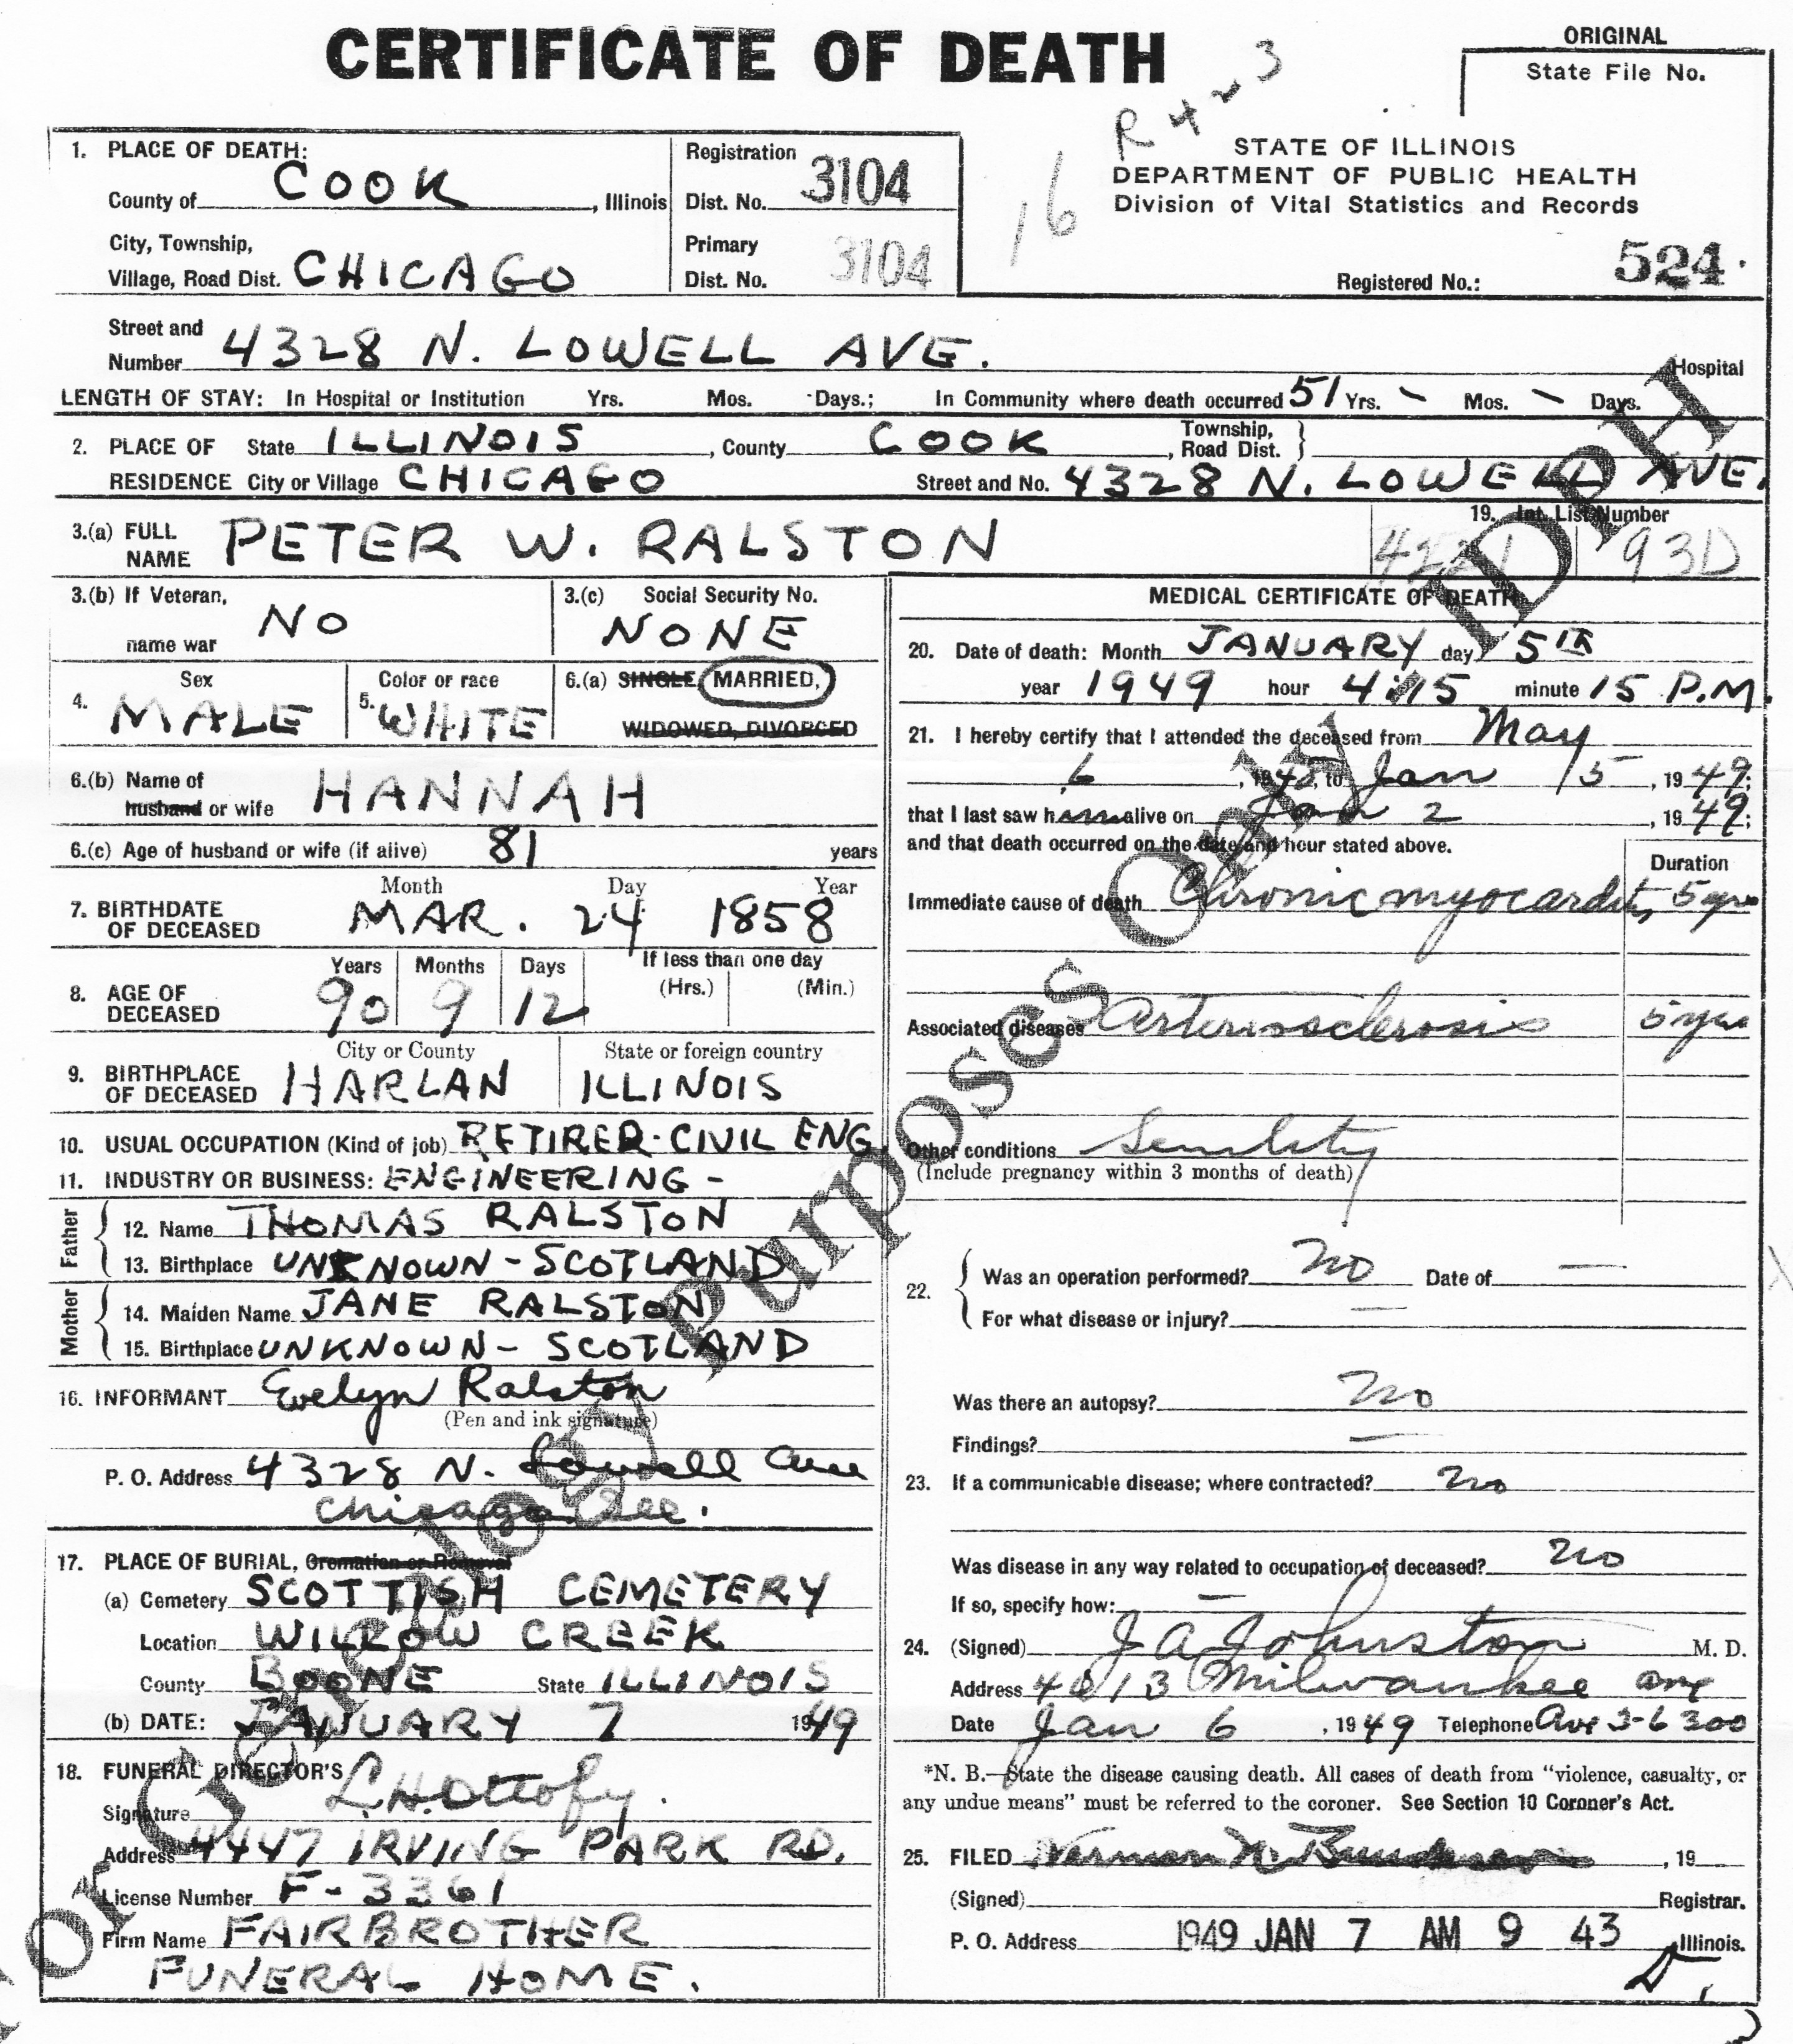 CERTIFICATE OF DEATH
ORIGINAL
State File No.
R 4 2 3
16
STATE OF ILLINOIS
DEPARTMENT OF PUBLIC HEALTH
Division of Vital Statistics and Records
Registered No.: 524.
1. PLACE OF DEATH:
County of COOK, Illinois
Registration
Dist. No. 3104
City, Township,
Village, Road Dist. CHICAGO
Primary
Dist. No. 3104
Street and
Number 4328 N. LOWELL AVE. Hospital
LENGTH OF STAY: In Hospital or Institution Yrs. Mos. Days.; In Community where death occurred 51 Yrs. - Mos. - Days.
2. PLACE OF State ILLINOIS, County COOK, Township, Road Dist. }
RESIDENCE City or Village CHICAGO Street and No. 4328 N. LOWELL AVE.
3.(a) FULL
NAME PETER W. RALSTON
19. Int. List Number
93D
3.(b) If Veteran,
name war NO
3.(c) Social Security No.
NONE
4. Sex
MALE
5. Color or race
WHITE
6.(a) SINGLE, MARRIED,
WIDOWED, DIVORCED
6.(b) Name of
husband or wife HANNAH
6.(c) Age of husband or wife (if alive) 81 years
7. BIRTHDATE
OF DECEASED
Month Day Year
MAR. 24 1858
8. AGE OF
DECEASED
Years Months Days If less than one day
90 9 12 (Hrs.) (Min.)
9. BIRTHPLACE
OF DECEASED
City or County State or foreign country
HARLAN ILLINOIS
10. USUAL OCCUPATION (Kind of job) RETIRED-CIVIL ENG.
11. INDUSTRY OR BUSINESS: ENGINEERING -
Father
12. Name THOMAS RALSTON
13. Birthplace UNKNOWN - SCOTLAND
Mother
14. Maiden Name JANE RALSTON
15. Birthplace UNKNOWN - SCOTLAND
16. INFORMANT Evelyn Ralston
(Pen and ink signature)
P. O. Address 4328 N. Lowell Ave
Chicago Ill.
17. PLACE OF BURIAL, Cremation or Removal
(a) Cemetery SCOTTISH CEMETERY
Location WILLOW CREEK
County BOONE State ILLINOIS
(b) DATE: JANUARY 7 1949
18. FUNERAL DIRECTOR'S
Signature L.H. Ottofy.
Address 4447 IRVING PARK RD.
License Number F-3361
Firm Name FAIRBROTHER
FUNERAL HOME.
MEDICAL CERTIFICATE OF DEATH
20. Date of death: Month JANUARY day 5TH
year 1949 hour 4:15 minute 15 P.M.
21. I hereby certify that I attended the deceased from May
6, 1942, to Jan 5, 1949;
that I last saw him alive on Jan 2, 1949;
and that death occurred on the date and hour stated above.
Duration
Immediate cause of death Chronic myocarditis 5 yrs
Associated diseases Arteriosclerosis 5 yrs
Other conditions Senility
(Include pregnancy within 3 months of death)
22. { Was an operation performed? no Date of —
For what disease or injury? —
Was there an autopsy? no
Findings? —
23. If a communicable disease; where contracted? no
Was disease in any way related to occupation of deceased? no
If so, specify how: —
24. (Signed) J A Johnston M. D.
Address 4013 Milwaukee ave
Date Jan 6, 1949 Telephone Ave 3-6300
*N. B.—State the disease causing death. All cases of death from "violence, casualty, or
any undue means" must be referred to the coroner. See Section 10 Coroner's Act.
25. FILED Herman N. Bundesen, 19
(Signed) Registrar.
P. O. Address 1949 JAN 7 AM 9 43 Illinois.
D.
For Genealogy Purposes Only IDPH